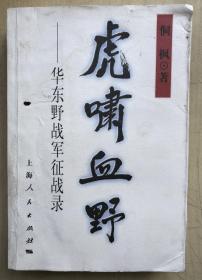 虎啸血野
——华东野战军征战录
侗枫⊙著
上海人民出版社